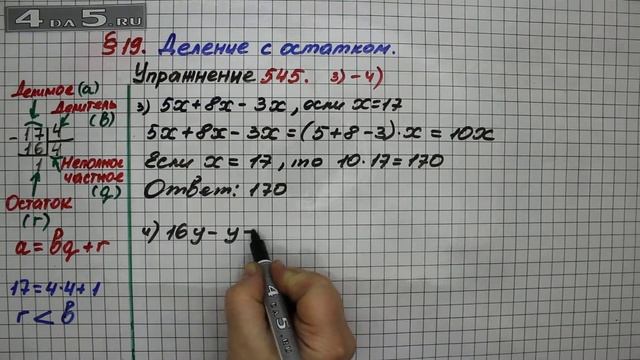 4 ДА 5.RU
§ 19. Деление с остатком.
Упражнение 545. 3)-4)
Делимое (a)
Делитель (b)
- 17 | 4
16 | 4
1
Неполное частное (q)
Остаток (r)
a = bq + r
17 = 4·4+1
r < b
3) 5x+8x-3x, если x=17
5x+8x-3x=(5+8-3)·x = 10x
Если x = 17, то 10·17=170
Ответ: 170
4) 16y - y -
4 ДА 5.